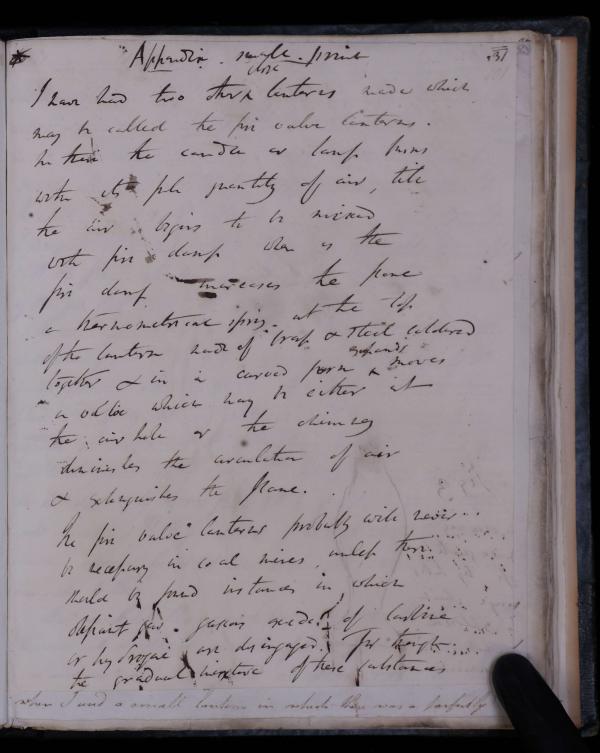 Appendix. single. print
close
231
I have had two other lanterns made which
may be called the fire valve lanterns.
In these the candle or lamp burns
with its full quantity of air, till
the air begins to be mixed
with fire damp when as the
fire damp increases the flame
a thermometrical spring at the top
of the lantern made of brass & steel soldered
together & in a curved form expands & moves
a valve which may be either at
the air hole or the chimney
diminishes the circulation of air
& extinguishes the flame.
The fire valve lanterns probably will never
be necessary in coal mines unless there
should be found instances in which
olefiant gas. gaseous oxide of carbone
or hydrogene are disengaged. For though
the gradual mixture of these substances
when I used a small lantern in which there was a perfectly